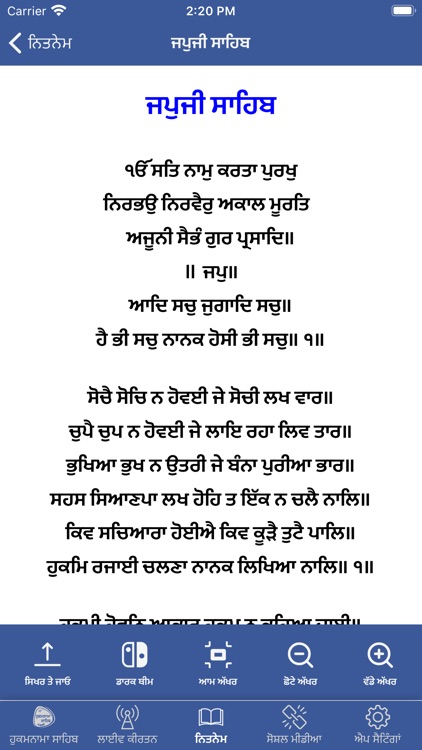 Carrier 2:20 PM
ਨਿਤਨੇਮ ਜਪੁਜੀ ਸਾਹਿਬ
ਜਪੁਜੀ ਸਾਹਿਬ
ੴ ਸਤਿ ਨਾਮੁ ਕਰਤਾ ਪੁਰਖੁ
ਨਿਰਭਉ ਨਿਰਵੈਰੁ ਅਕਾਲ ਮੂਰਤਿ
ਅਜੂਨੀ ਸੈਭੰ ਗੁਰ ਪ੍ਰਸਾਦਿ॥
॥ ਜਪੁ॥
ਆਦਿ ਸਚੁ ਜੁਗਾਦਿ ਸਚੁ॥
ਹੈ ਭੀ ਸਚੁ ਨਾਨਕ ਹੋਸੀ ਭੀ ਸਚੁ॥ ੧॥
ਸੋਚੈ ਸੋਚਿ ਨ ਹੋਵਈ ਜੇ ਸੋਚੀ ਲਖ ਵਾਰ॥
ਚੁਪੈ ਚੁਪ ਨ ਹੋਵਈ ਜੇ ਲਾਇ ਰਹਾ ਲਿਵ ਤਾਰ॥
ਭੁਖਿਆ ਭੁਖ ਨ ਉਤਰੀ ਜੇ ਬੰਨਾ ਪੁਰੀਆ ਭਾਰ॥
ਸਹਸ ਸਿਆਣਪਾ ਲਖ ਹੋਹਿ ਤ ਇੱਕ ਨ ਚਲੈ ਨਾਲਿ॥
ਕਿਵ ਸਚਿਆਰਾ ਹੋਈਐ ਕਿਵ ਕੂੜੈ ਤੁਟੈ ਪਾਲਿ॥
ਹੁਕਮਿ ਰਜਾਈ ਚਲਣਾ ਨਾਨਕ ਲਿਖਿਆ ਨਾਲਿ॥ ੧॥
ਸਿਖਰ ਤੇ ਜਾਓ ਡਾਰਕ ਥੀਮ ਆਮ ਅੱਖਰ ਛੋਟੇ ਅੱਖਰ ਵੱਡੇ ਅੱਖਰ
ਹੁਕਮਨਾਮਾ ਸਾਹਿਬ ਲਾਈਵ ਕੀਰਤਨ ਨਿਤਨੇਮ ਸੋਸ਼ਲ ਮੀਡੀਆ ਐਪ ਸੈਟਿੰਗਾਂ